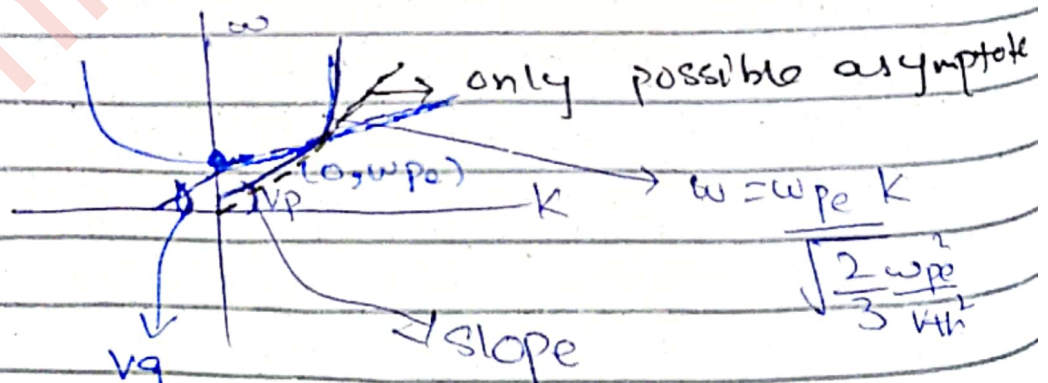 ω
only possible asymptote
(0, ωpe)
Vp
K
ω = ωpe K / √(2/3 ωpe²/Vth²)
slope
Vg